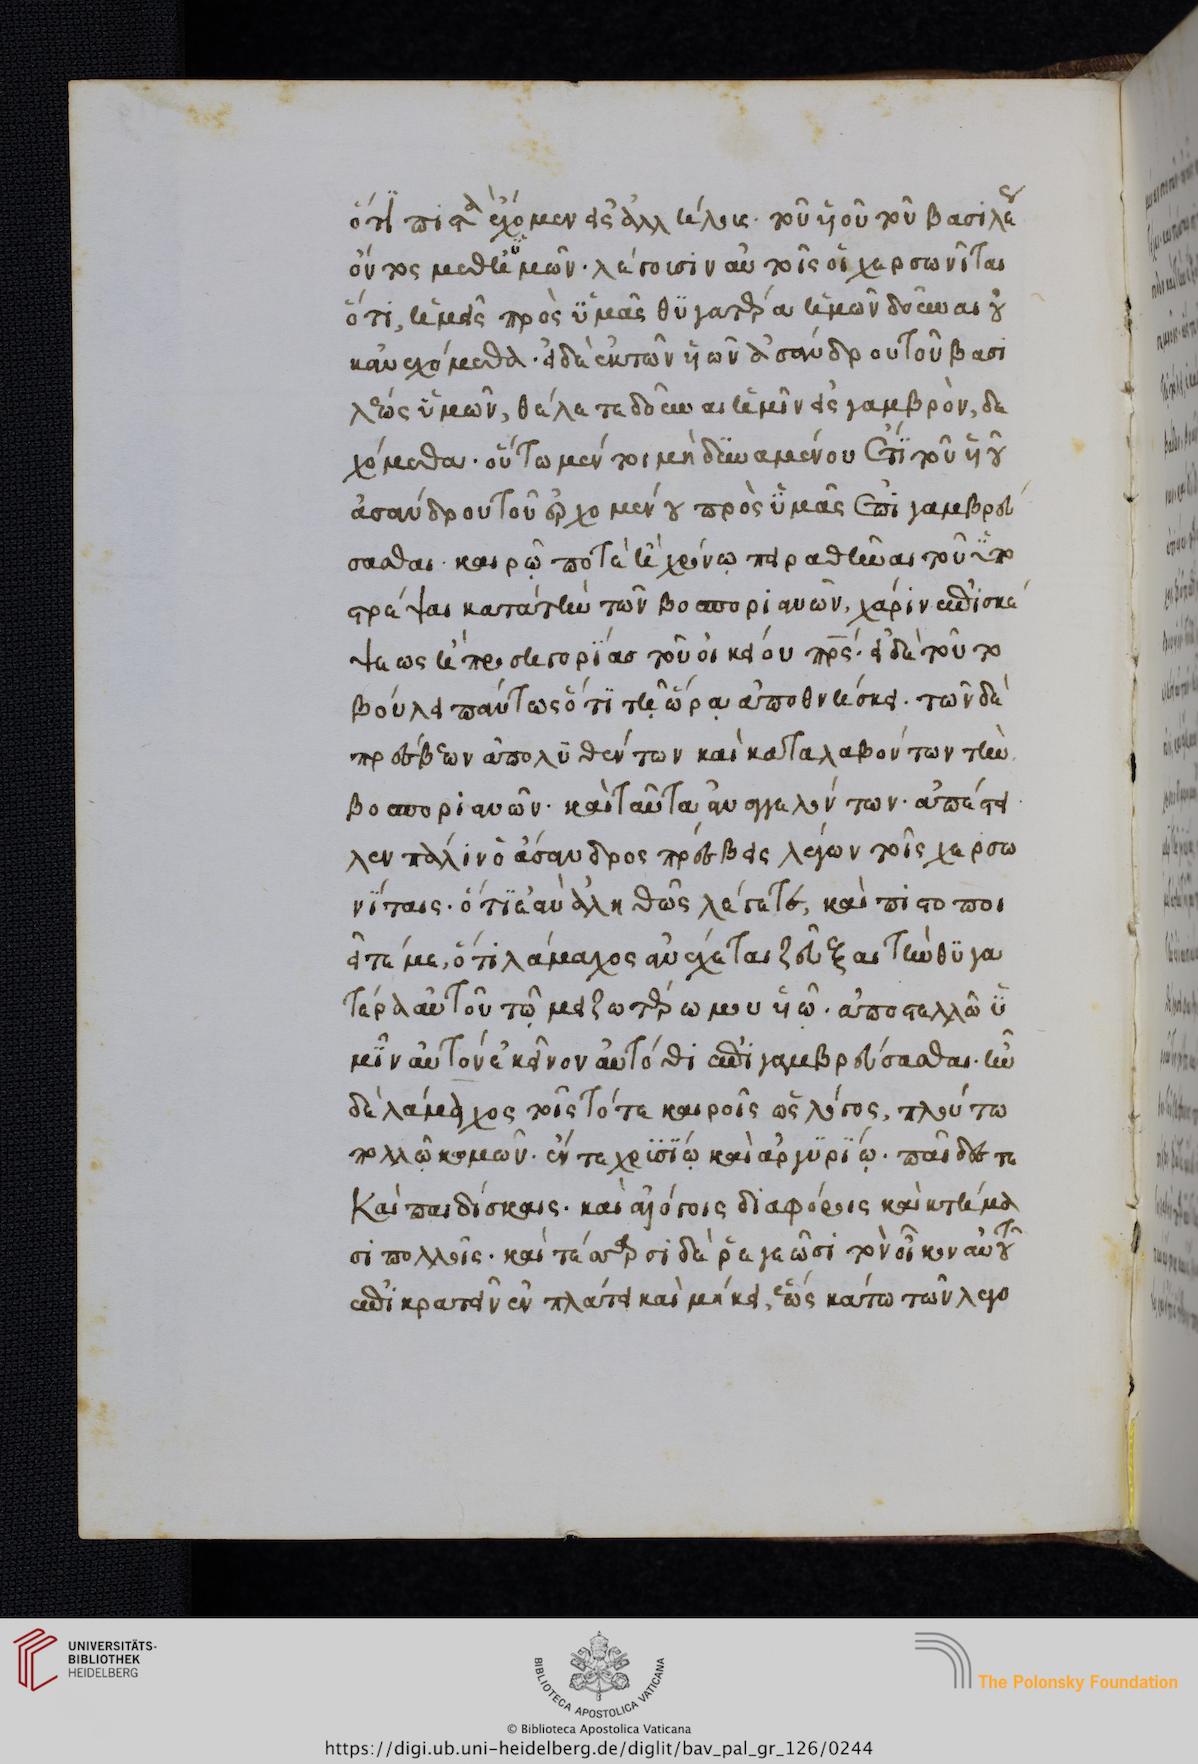 ὅτι πιστὰ ἔχομεν εἰς ἀλλήλοις· τοῦ υἱοῦ τοῦ βασιλεύ
όντος μεθ' ὑμῶν· λέγουσιν αὐτοῖς οἱ χερσωνῖται
ὅτι, ἡμεῖς πρὸς ὑμᾶς θυγατέρα ἡμῶν δοῦναι οὐ
κ ἀνεχόμεθα· εἰ δὲ ἐκ τῶν υἱῶν ἀσάνδρου τοῦ βασι
λέως ὑμῶν, θέλετε δοῦναι ἡμῖν εἰς γαμβρὸν, δε
χόμεθα· οὕτω μέντοι μὴ δυναμένου ἔτι τοῦ υἱοῦ
ἀσάνδρου τοῦ ἐρχομένου πρὸς ὑμᾶς ἐπὶ γαμβρεύ
σασθαι· καιρῷ ποτὲ ἢ χρόνῳ πειραθῆναι τοῦ ὑπο
στρέψαι κατὰ τὴν τῶν βοσποριανῶν, χάριν ἐπισκέ
ψεως ἢ προσηγορίας τοῦ οἰκείου πρς· εἰ δὲ τοῦτο
βούλει πάντως ὅτι τῇ ὥρᾳ ἀποθνήσκει· τῶν δὲ
πρέσβεων ἀπολυθέντων καὶ καταλαβόντων τὴν
βοσποριανῶν· καὶ ταῦτα ἀναγγειλάντων· ἀπέστει
λεν πάλιν ὁ ἄσανδρος πρέσβεις λέγων τοῖς χερσω
νίταις· ὅτι ἐὰν ἀληθῶς λέγετε, καὶ πιστοποι
εῖτέ με, ὅτι λάμαχος ἀνέχεται ζεῦξαι τὴν θυγα
τέρα αὐτοῦ τῷ μειζωτέρω μου υἱῷ· ἀποστελλῶ ὑ
μῖν αὐτὸν ἐκεῖνον αὐτόθι ἐπιγαμβρεύσασθαι· ἦν
δὲ λάμαχος τοῖς τότε καιροῖς ὡς λόγος, πλούτω
πολλῷ κομῶν· ἔν τε χρυσίῳ καὶ ἀργυρίῳ· παῖδες τε
καὶ παιδίσκαις· καὶ ἀλόγοις διαφόροις καὶ κτήμα
σι πολλοῖς· καὶ τέσαρσι δὲ ῥεγεῶσι τὸν οἶκον αὐτοῦ
ἐπικρατεῖν ἐν πλάτει καὶ μήκει, ἕως κάτω τῶν λεγο
UNIVERSITÄTS-
BIBLIOTHEK
HEIDELBERG
BIBLIOTECA APOSTOLICA VATICANA
The Polonsky Foundation
© Biblioteca Apostolica Vaticana
https://digi.ub.uni-heidelberg.de/diglit/bav_pal_gr_126/0244